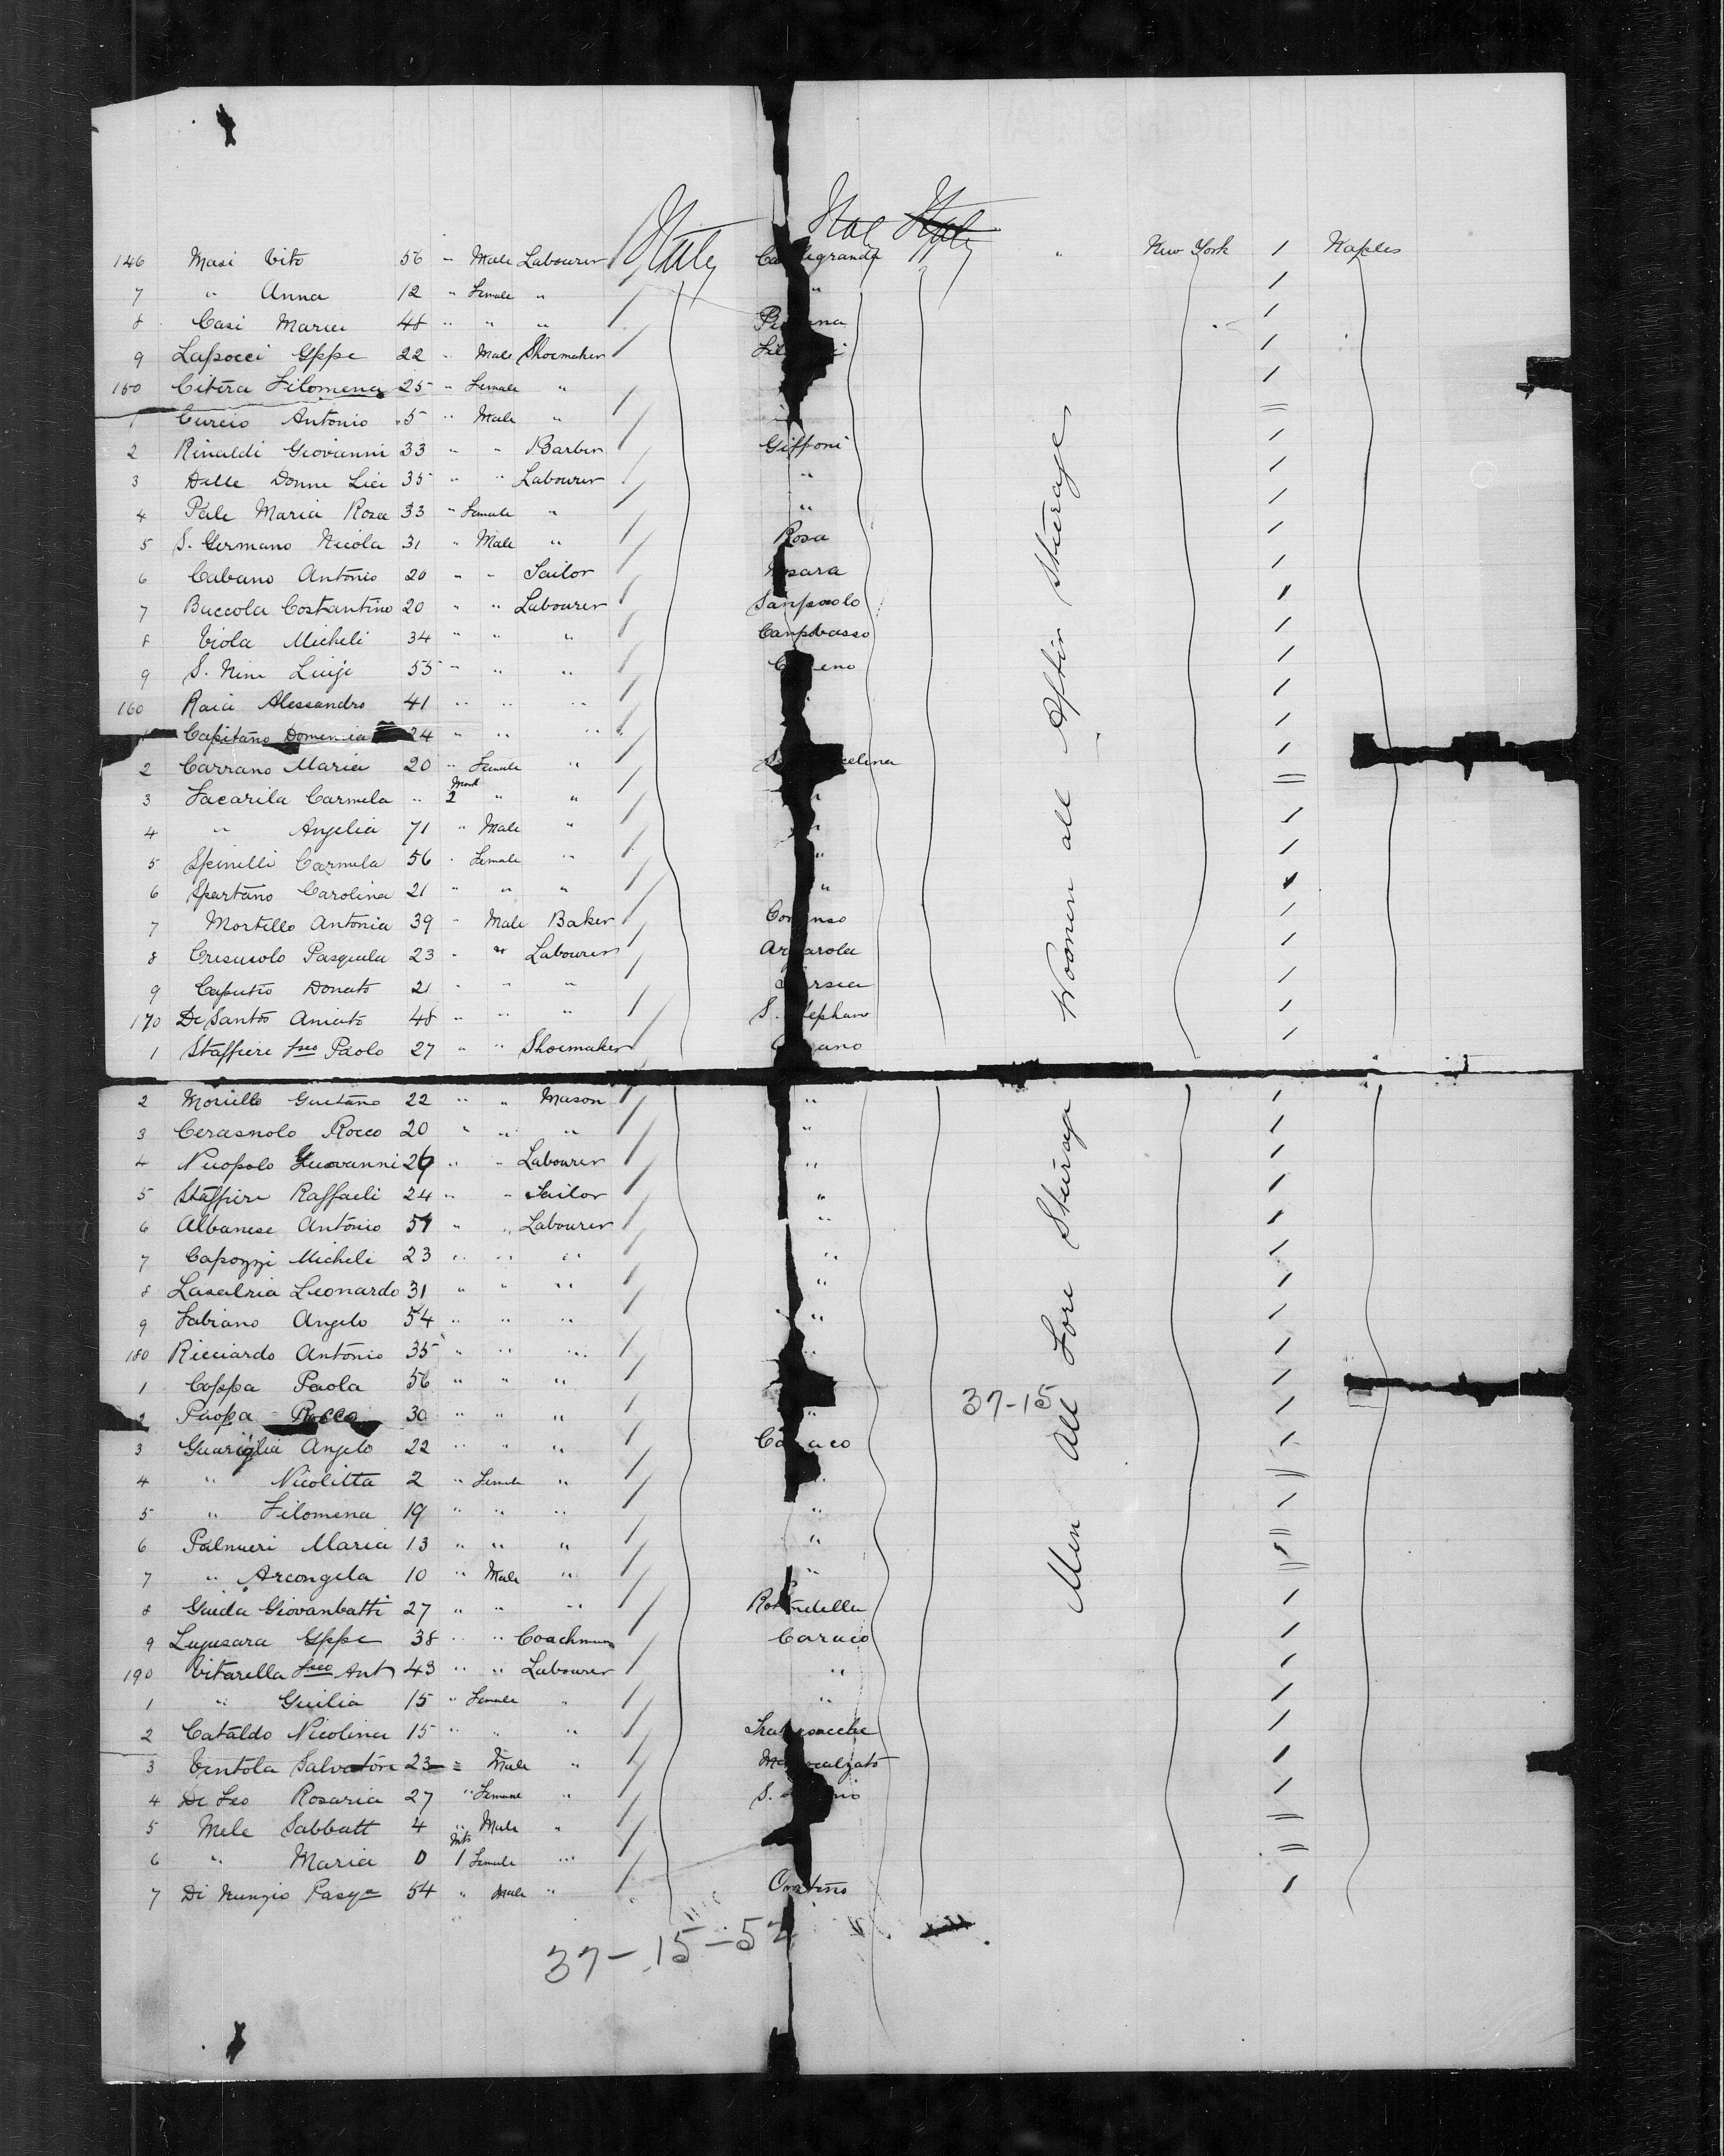 Italy Ital Italy
146 Masi Vito 56 " Male Labourer grande " New York 1 Naples
7 " Anna 12 " Female " " 1
8 Casi Maria 48 " " " 1
9 Lapocci Gppe 22 " Male Shoemaker 1
150 Citera Filomena 25 " Female " 1
1 Curcio Antonio 5 " Male "
2 Rinaldi Giovanni 33 " " Barber Giffoni 1
3 Delle Donne Lici 35 " " Labourer " 1
4 Pale Maria Rosa 33 " Female " " 1
5 S. Germano Nicola 31 " Male " Rosa 1
6 Cabano Antonio 20 " " Tailor 1
7 Baccola Costantino 20 " " Labourer Sanpaolo 1
8 Viola Micheli 34 " " " Campobasso 1
9 S. Nini Luigi 55 " " " 1
160 Raia Alessandro 41 " " " 1
1 Capitano Domenica 24 " " " 1
2 Carrano Maria 20 " Female " 1
3 Facarila Carmela " 2 Month " "
4 " Angelia 71 " Male " " 1
5 Spinelli Carmela 56 " Female " " 1
6 Spartano Carolina 21 " " " " 1
7 Mortillo Antonia 39 " Male Baker 1
8 Cresuolo Pasquala 23 " " Labourer 1
9 Caputo Donato 21 " " " 1
170 De Santos Aniato 48 " " " S. 1
1 Staffieri Fsco Paolo 27 " " Shoemaker 1
Women all After Steerage
2 Moriello Gaetano 22 " " Mason " 1
3 Cerasnolo Rocco 20 " " " " 1
4 Nuopolo Giovanni 26 " " Labourer " 1
5 Staffieri Raffaeli 24 " " Tailor " 1
6 Albanese Antonio 51 " " Labourer " 1
7 Capozzi Micheli 23 " " " " 1
8 Lasalria Leonardo 31 " " " " 1
9 Fabiano Angelo 54 " " " " 1
180 Ricciardo Antonio 35 " " " " 1
1 Coppa Paola 56 " " " 1
2 Paopa Rocco 30 " " " " 37-15 1
3 Guariglia Angelo 22 " " " 1
4 " Nicolitta 2 " Female "
5 " Filomena 19 " " " " 1
6 Palmieri Maria 13 " " " "
7 " Arcongela 10 " Male " "
8 Guida Giovanbatti 27 " " " 1
9 Lupisara Gppe 38 " " Coachman Caraco 1
190 Vitarella Fsco Ant 43 " " Labourer " 1
1 " Guilia 15 " Female " " 1
2 Cataldo Nicolina 15 " " " 1
3 Tintola Salvatore 23 " Male " 1
4 De Leo Rosaria 27 " Female " S. 1
5 Mele Sabbatt 4 " Male "
6 " Maria 0 1 Mts Female "
7 Di Nunzio Pasqe 54 " Male " 1
Men All Fore Steerage
37-15-52